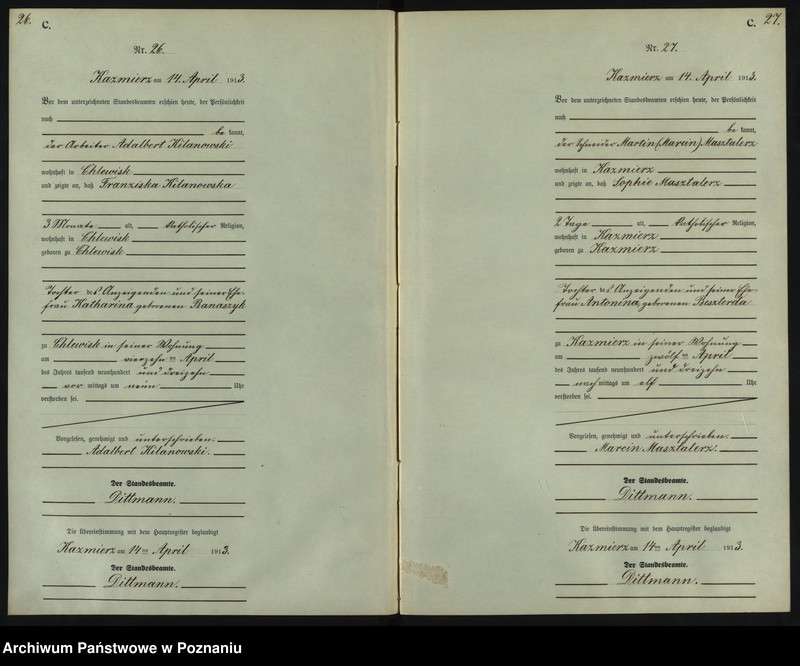 26.
C.
Nr. 26.
Kazmierz am 14. April 1913.
Vor dem unterzeichneten Standesbeamten erschien heute, der Persönlichkeit
nach
be kannt,
der Arbeiter Adalbert Kilanowski
wohnhaft in Chlewisk
und zeigte an, daß Franziska Kilanowska
3 Monate alt, katholischer Religion,
wohnhaft in Chlewisk
geboren zu Chlewisk
Tochter des Anzeigenden und seiner Ehe-
frau Katharina geborenen Banaszyk
zu Chlewisk in seiner Wohnung
am vierzehn ten April
des Jahres tausend neunhundert und dreizehn
vor mittags um neun Uhr
verstorben sei.
Vorgelesen, genehmigt und unterschrieben.
Adalbert Kilanowski.
Der Standesbeamte.
Dittmann.
Die Übereinstimmung mit dem Hauptregister beglaubigt
Kazmierz am 14ten April 1913.
Der Standesbeamte.
Dittmann.
27.
C.
Nr. 27.
Kazmierz am 14. April 1913.
Vor dem unterzeichneten Standesbeamten erschien heute, der Persönlichkeit
nach
be kannt,
der Schneider Martin (Marcin) Masztalerz
wohnhaft in Kazmierz
und zeigte an, daß Sophie Masztalerz
2 Tage alt, katholischer Religion,
wohnhaft in Kazmierz
geboren zu Kazmierz
Tochter des Anzeigenden und seiner Ehe-
frau Antonina, geborenen Beszterda
zu Kazmierz in seiner Wohnung
am zwölf ten April
des Jahres tausend neunhundert und dreizehn
nach mittags um elf Uhr
verstorben sei.
Vorgelesen, genehmigt und unterschrieben.
Marcin Masztalerz.
Der Standesbeamte.
Dittmann.
Die Übereinstimmung mit dem Hauptregister beglaubigt
Kazmierz am 14ten April 1913.
Der Standesbeamte.
Dittmann.
Archiwum Państwowe w Poznaniu